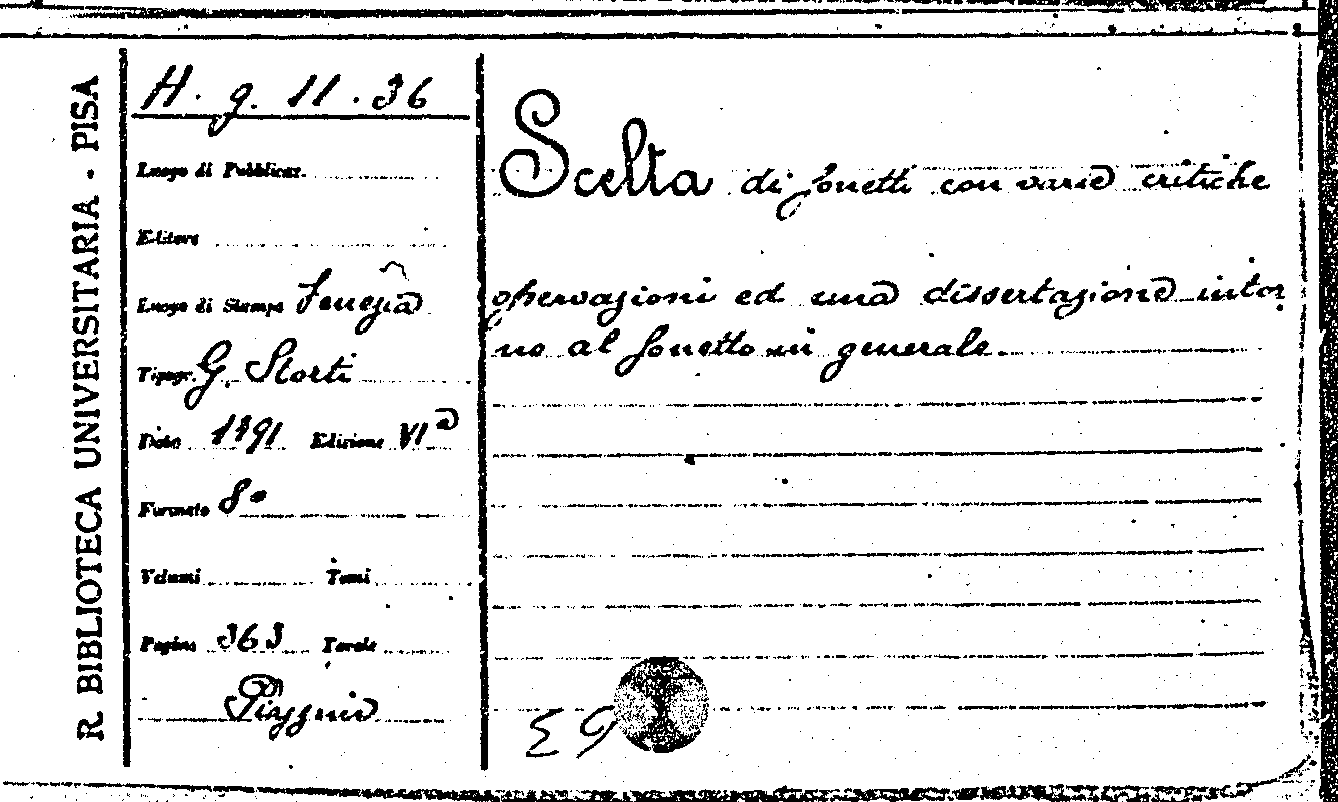 R. BIBLIOTECA UNIVERSITARIA - PISA
H. g. 11. 36
Luogo di Pubblicaz.
Editore
Luogo di Stampa Venezia
Tipogr. G. Storti
Data 1791 Edizione VIa
Formato 8°
Volumi Tomi
Pagine 363 Tavole
Scelta di sonetti con varie critiche
osservazioni ed una dissertazione intor
no al sonetto in generale.